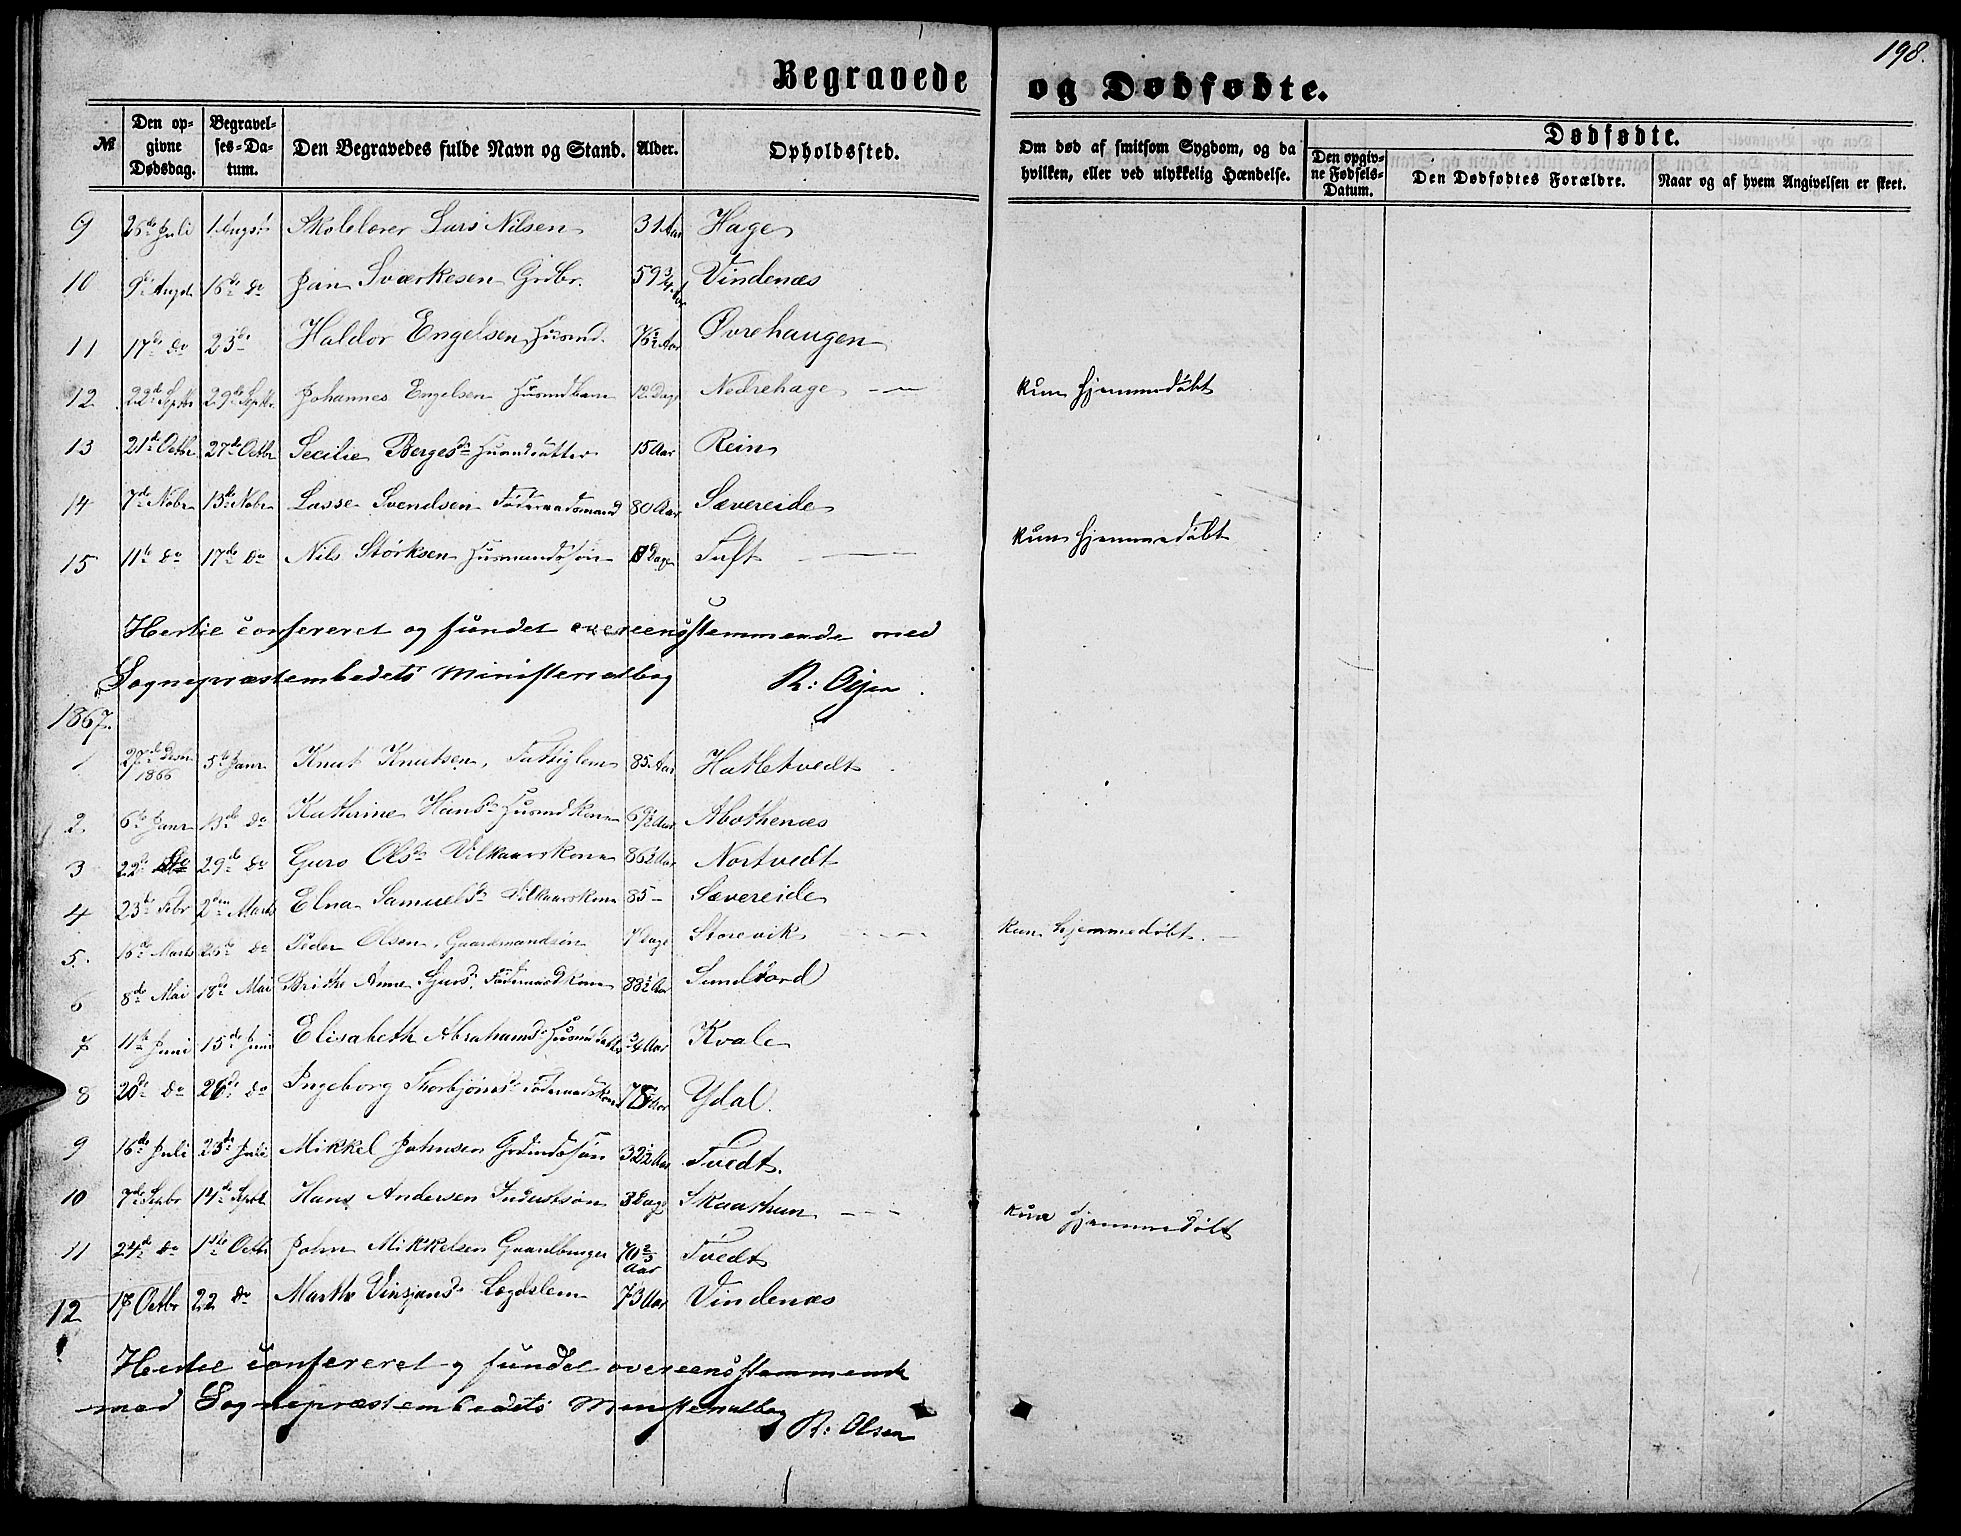 198.
Begravede og Dødfødte.
№ Den opgivne Dødsdag. Begravelses-Datum. Den Begravedes fulde Navn og Stand. Alder. Opholdssted. Om død af smitsom Sygdom, og da hvilken, eller ved ulykkelig Hændelse. Dødfødte. Den opgivne Fødsels-Datum. Den Dødfødtes Forældre. Naar og af hvem Angivelsen er skeet.
9 26de Juli 1 Augst Skolelærer Lars Nilsen 31 Aar Hage
10 9de Augst 16de do Jan Sværkesen Grdbr. 59 3/4 Aar Vindenæs
11 17de do 23de Haldor Engelsen Husmd. 76½ Aar Øvrehaugen
12 22de Septbr 29de Septbr. Johannes Engelsen Husmdbarn 12 Dage Nedrehage — kun hjemmedøbt
13 21de Octbr 27de Octbr Secilie Bergesdr Husmdsdatter 15 Aar Rein
14 7de Nobr 13de Nobr Lasse Svendsen Föderaadsmand 80 Aar Sævereide
15 11te do 17de do Nils Størksen Husmandssøn 8 Dage Tuft — kun hjemmedøbt
Hertil confereret og fundet overeensstemmende med
Sognepræstembedets Ministerialbog R: Olsen
1867.
1 27de Desbr 1866 5te Janr Knut Knutsen, Fattiglem 85 Aar Hatletvedt
2. 6te Janr 13de do Kathrine Hansdr Husmdkone 69½ Aar Abothenæs
3 22de do 29de do Guro Olsdr Vilkaarskone 86½ Aar Nortvedt
4 23de Febr 2den Marts Elna Samuelsdr Vilkaarskone 85 — Sævereide
5. 16de Marts 26de do Peder Olsen, Gaardmandsøn 7 Dage Storevik — kun hjemmedøbt. —
6 8de Mai 18de Mai Brithe Anne Sjursdr. Föderaadkone 88½ Aar Sundfiord
7 11te Juni 15de Juni Elisabeth Abrahamsdr Husmdsdatter 3/4 Aar Kvale
8 20de do 26de do Ingeborg Thorbjørnsdr Föderaadskone 78 Aar Ydal.
9 16de Juli 23de Juli Mikkel Johnsen Grdmdssøn 32½ Aar Tvedt.
10 7de Sepbr 14de Septbr Hans Andersen Industsøn 3 Dage Skaathun — kun hjemmedøbt
11 24de do 1ste Octbr John Mikkelsen Gaardbruger 70 2/3 Aar Tvedt
12 17 Octbr 22 do Marthe Vinsjansdr Lægdslem 73 Aar Vindenæs
Hertil confereret og fundet overeensstemmende
med Sognepræstembedets Ministerialbog
R: Olsen